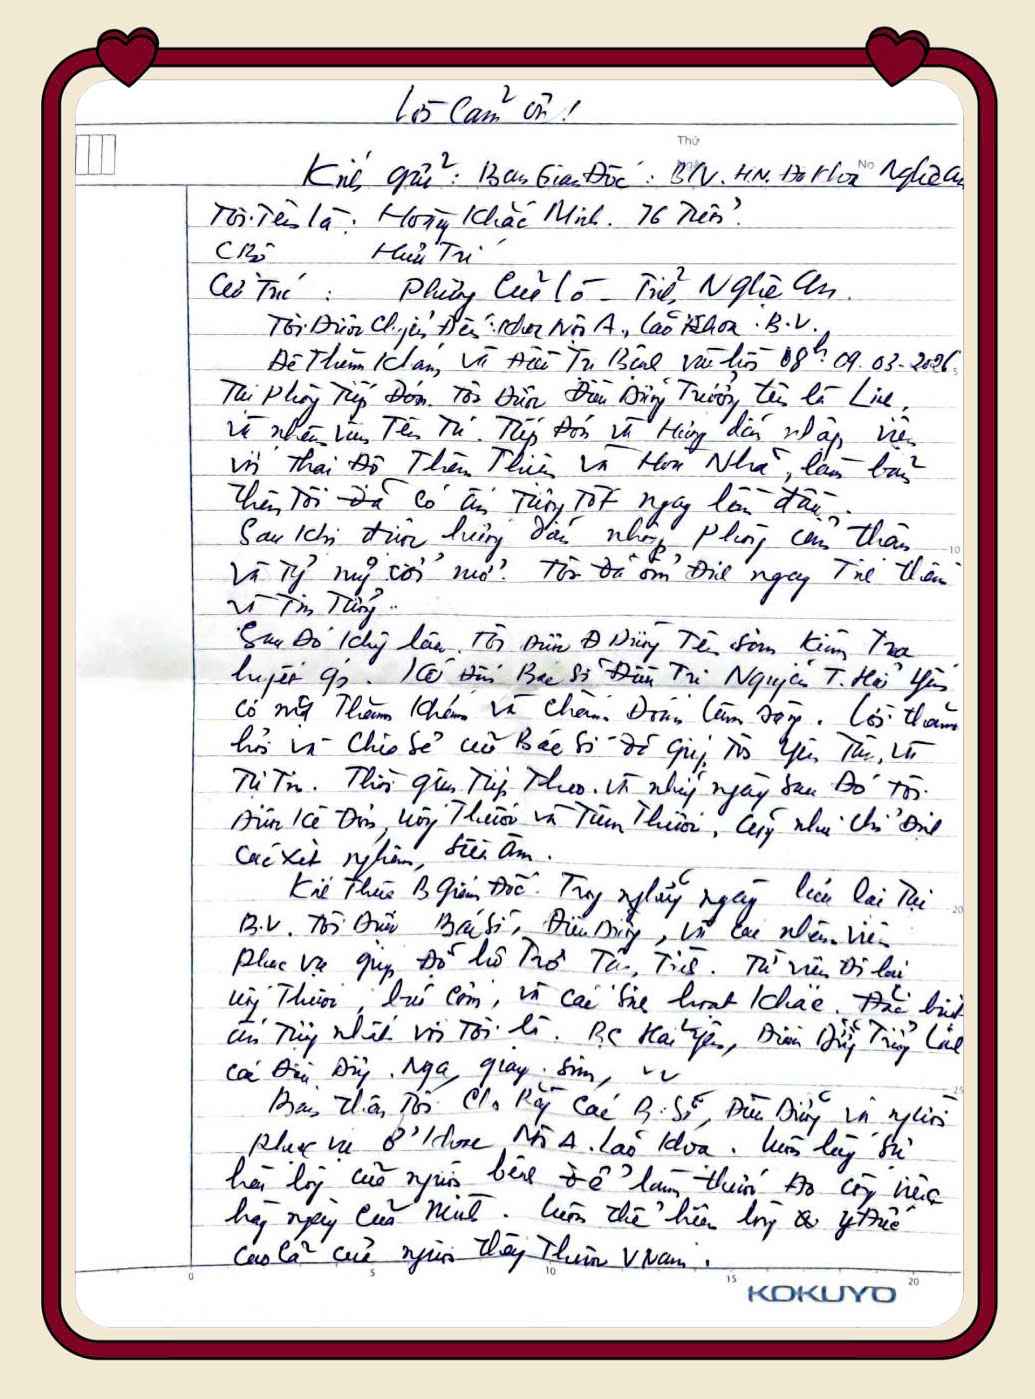 Lời Cảm ơn!
Thứ
No
Kính gửi: Ban Giám Đốc: B/V. H.N. Đa Khoa Nghệ An
Tôi Tên là: Hoàng Khắc Minh. 76 Tuổi.
C Bộ Hưu Trí
Cư Trú : Phường Cửa Lò - Tỉnh Nghệ An.
Tôi Được Chuyển Đến: Khoa Nội A, Lão Khoa. B.V.
Để Thăm Khám, và Điều Trị Bệnh vào hồi 08h. 09.03-2026
Tại Phòng Tiếp Đón. Tôi Được Điều Dưỡng Trưởng tên là
và nhân viên Tên Tú. Tiếp Đón và Hướng dẫn nhập viện
với thái Độ Thân Thiện và Hòa Nhã, làm bản
thân Tôi Đã có ấn Tượng Tốt ngay lần đầu.
Sau Khi được hướng dẫn những Phòng cẩn thận
và Tỷ mỷ cởi mở. Tôi Đã ổn Định ngay Tinh thần
và Tin Tưởng.
Sau Đó Không lâu. Tôi Được Đ Dưỡng Tên Kiểm Tra
huyết áp. Bác Sĩ Điều Trị Nguyễn T. Hải Yến
có mặt Thăm Khám và chẩn Đoán Lâm Sàng. Lời thăm
hỏi và Chia Sẻ của Bác Sĩ đã giúp Tôi Yên Tâm, và
Tự Tin. Thời gian Tiếp Theo. và những ngày Sau Đó Tôi
Được Kê Đơn, uống Thuốc và Tiêm Thuốc, cũng như Chỉ Định
các xét nghiệm, Siêu Âm.
Kính Thưa B Giám Đốc. Trong những ngày lưu lại Tại
B.V. Tôi Được Bác Sĩ, Điều Dưỡng, và các nhân viên
Phục vụ giúp Đỡ hỗ Trợ Tận Tình. Từ viên Đi lại
uống Thuốc, bữa Cơm, và các Sinh hoạt Khác. Đặc biệt
ấn Tượng nhất với Tôi là. BS Hải Yến, Điều Dưỡng Trưởng
các Điều Dưỡng. Nga, vv
Bản thân Tôi Cho Rằng Các B. Sĩ, Điều Dưỡng và người
Phục vụ ở Khoa Nội A. Lão Khoa. Luôn lấy Sự
hài lòng của người bệnh để làm thước Đo công việc
hàng ngày của Mình. Luôn thể hiện lòng y Đức
cao cả của người Thầy Thuốc V Nam.
0 5 10 15 20
KOKUYO